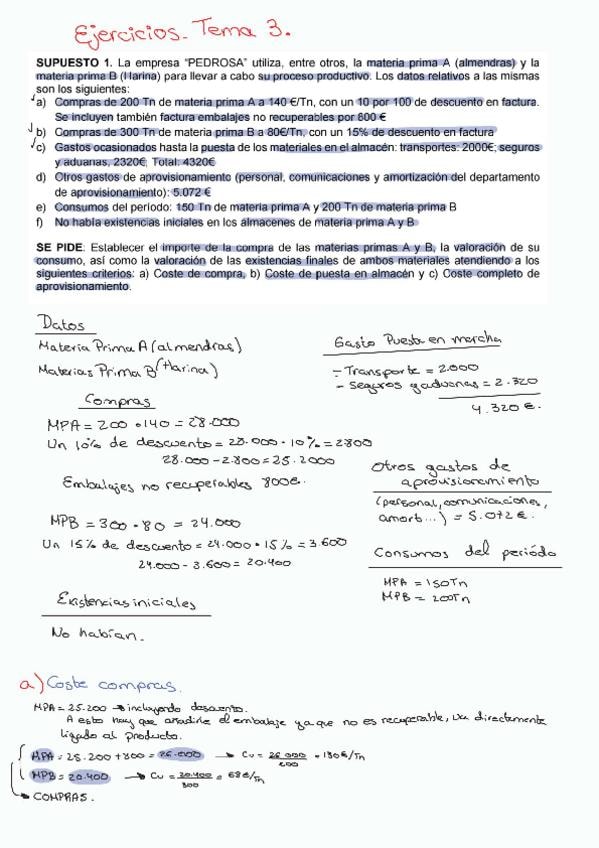 Ejercicios. Tema 3.
SUPUESTO 1. La empresa “PEDROSA” utiliza, entre otros, la materia prima A (almendras) y la
materia prima B (Harina) para llevar a cabo su proceso productivo. Los datos relativos a las mismas
son los siguientes:
a) Compras de 200 Tn de materia prima A a 140 €/Tn, con un 10 por 100 de descuento en factura.
Se incluyen también factura embalajes no recuperables por 800 €
b) Compras de 300 Tn de materia prima B a 80€/Tn, con un 15% de descuento en factura
c) Gastos ocasionados hasta la puesta de los materiales en el almacén: transportes: 2000€; seguros
y aduanas, 2320€; Total: 4320€
d) Otros gastos de aprovisionamiento (personal, comunicaciones y amortización del departamento
de aprovisionamiento): 5.072 €
e) Consumos del periodo: 150 Tn de materia prima A y 200 Tn de materia prima B
f) No había existencias iniciales en los almacenes de materia prima A y B
SE PIDE: Establecer el importe de la compra de las materias primas A y B, la valoración de su
consumo, así como la valoración de las existencias finales de ambos materiales atendiendo a los
siguientes criterios: a) Coste de compra, b) Coste de puesta en almacén y c) Coste completo de
aprovisionamiento.
Datos
Materia Prima A (almendras)
Materias Prima B (Harina)
Compras
MPA = 200 · 140 = 28.000
Un 10% de descuento = 28.000 · 10% = 2800
28.000 - 2.800 = 25.2000
Embalajes no recuperables 800€.
MPB = 300 · 80 = 24.000
Un 15% de descuento = 24.000 · 15% = 3.600
24.000 - 3.600 = 20.400
Existencias iniciales
No habían.
Gasto Puesta en marcha
- Transporte = 2.000
- Seguros y aduanas = 2.320
4.320€.
Otros gastos de
aprovisionamiento
(personal, comunicaciones,
amort...) = 5.072€.
Consumos del periódo
MPA = 150Tn
MPB = 200Tn
a) Coste compras.
MPA = 25.200 → incluyendo descuento.
A esto hay que añadirle el embalaje ya que no es recuperable, va directamente
ligado al producto.
MPA = 25.200 + 800 = 26.000 → Cu = 26.000/200 = 130€/Tn
MPB = 20.400 → Cu = 20.400/300 = 68€/Tn
→ COMPRAS.